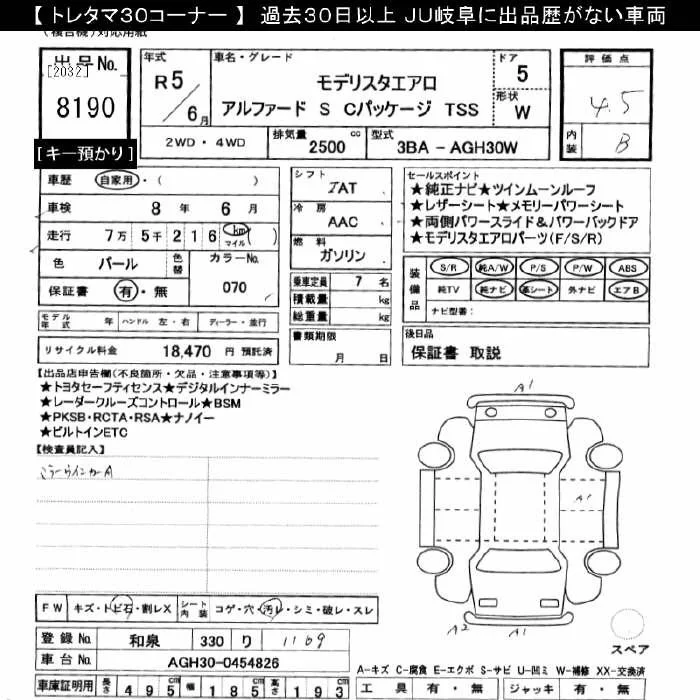 【 トレタマ30コーナー 】 過去30日以上 JU岐阜に出品歴がない車両
(複合機)対応用紙
出品No.
[2032]
8190
[キー預かり]
年式
R 5
/ 6 月
車名・グレード
モデリスタエアロ
アルファード S Cパッケージ TSS
ドア
5
形状
W
2WD ・ 4WD
排気量
2500 cc
型式
3BA - AGH30W
評価点
4.5
内装
B
車歴 自家用・( )
車検 8 年 6 月
走行 7万 5千 2 1 6 km マイル ( )
色 パール 色替 カラーNo.
保証書 有・無 070
モデル年式 年 ハンドル 左・右 ディーラー・並行
リサイクル料金 18,470 円 預託済
シフト
IAT
冷房
AAC
燃料
ガソリン
乗車定員 7 名
積載量 kg
総重量 kg
書類期限
月 日
セールスポイント
★純正ナビ★ツインムーンルーフ
★レザーシート★メモリーパワーシート
★両側パワースライド&パワーバックドア
★モデリスタエアロパーツ(F/S/R)
装備品
S/R 純A/W P/S P/W ABS
純TV 純ナビ 革シート 外ナビ エアB
ナビ型番:
後日品
保証書 取説
【出品店申告欄(不良箇所・欠品・注意事項等)】
★トヨタセーフティセンス★デジタルインナーミラー
★レーダークルーズコントロール★BSM
★PKSB・RCTA・RSA★ナノイー
★ビルトインETC
【検査員記入】
ミラーウインカーA
A1
A1
A2
A1
スペア
FW キズ・トビ石・割レX シート内装 コゲ・穴・汚レ・シミ・破レ・スレ
登録No. 和泉 330 り 1109
車台No. AGH30-0454826
車庫証明用 長さ 495 cm 幅 185 cm 高さ 193 cm
A-キズ C-腐食 E-エクボ S-サビ U-凹ミ W-補修 XX-交換済
工具 有・無 ジャッキ 有・無